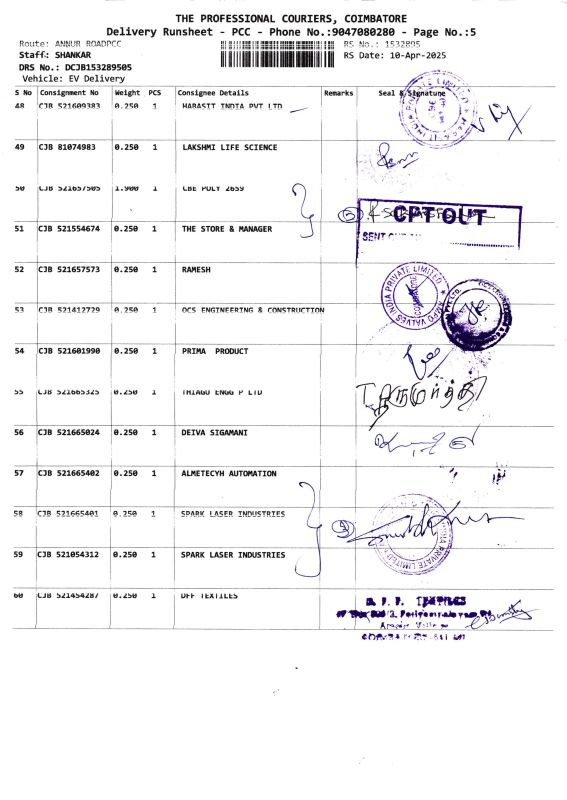 THE PROFESSIONAL COURIERS, COIMBATORE
Delivery Runsheet - PCC - Phone No.:9047080280 - Page No.:5
Route: ANNUR ROADPCC RS No.: 1532895
Staff: SHANKAR RS Date: 10-Apr-2025
DRS No.: DCJB153289505
Vehicle: EV Delivery
S No Consignment No Weight PCS Consignee Details Remarks Seal & Signature
48 CJB 521609383 0.250 1 HABASIT INDIA PVT LTD
49 CJB 81074983 0.250 1 LAKSHMI LIFE SCIENCE
50 CJB 521657505 1.900 1 CBE POLY 2659
CPT OUT
51 CJB 521554674 0.250 1 THE STORE & MANAGER
SENT
52 CJB 521657573 0.250 1 RAMESH
INDIA PRIVATE LIMITED
VALVES
53 CJB 521412729 0.250 1 OCS ENGINEERING & CONSTRUCTION
54 CJB 521601990 0.250 1 PRIMA PRODUCT
55 CJB 521665325 0.250 1 THIAGU ENGG P LTD
56 CJB 521665024 0.250 1 DEIVA SIGAMANI
57 CJB 521665402 0.250 1 ALMETECYH AUTOMATION
58 CJB 521665401 0.250 1 SPARK LASER INDUSTRIES
PRIVATE LIMITED
59 CJB 521054312 0.250 1 SPARK LASER INDUSTRIES
60 CJB 521454287 0.250 1 DFF TEXTILES
TEXTILES